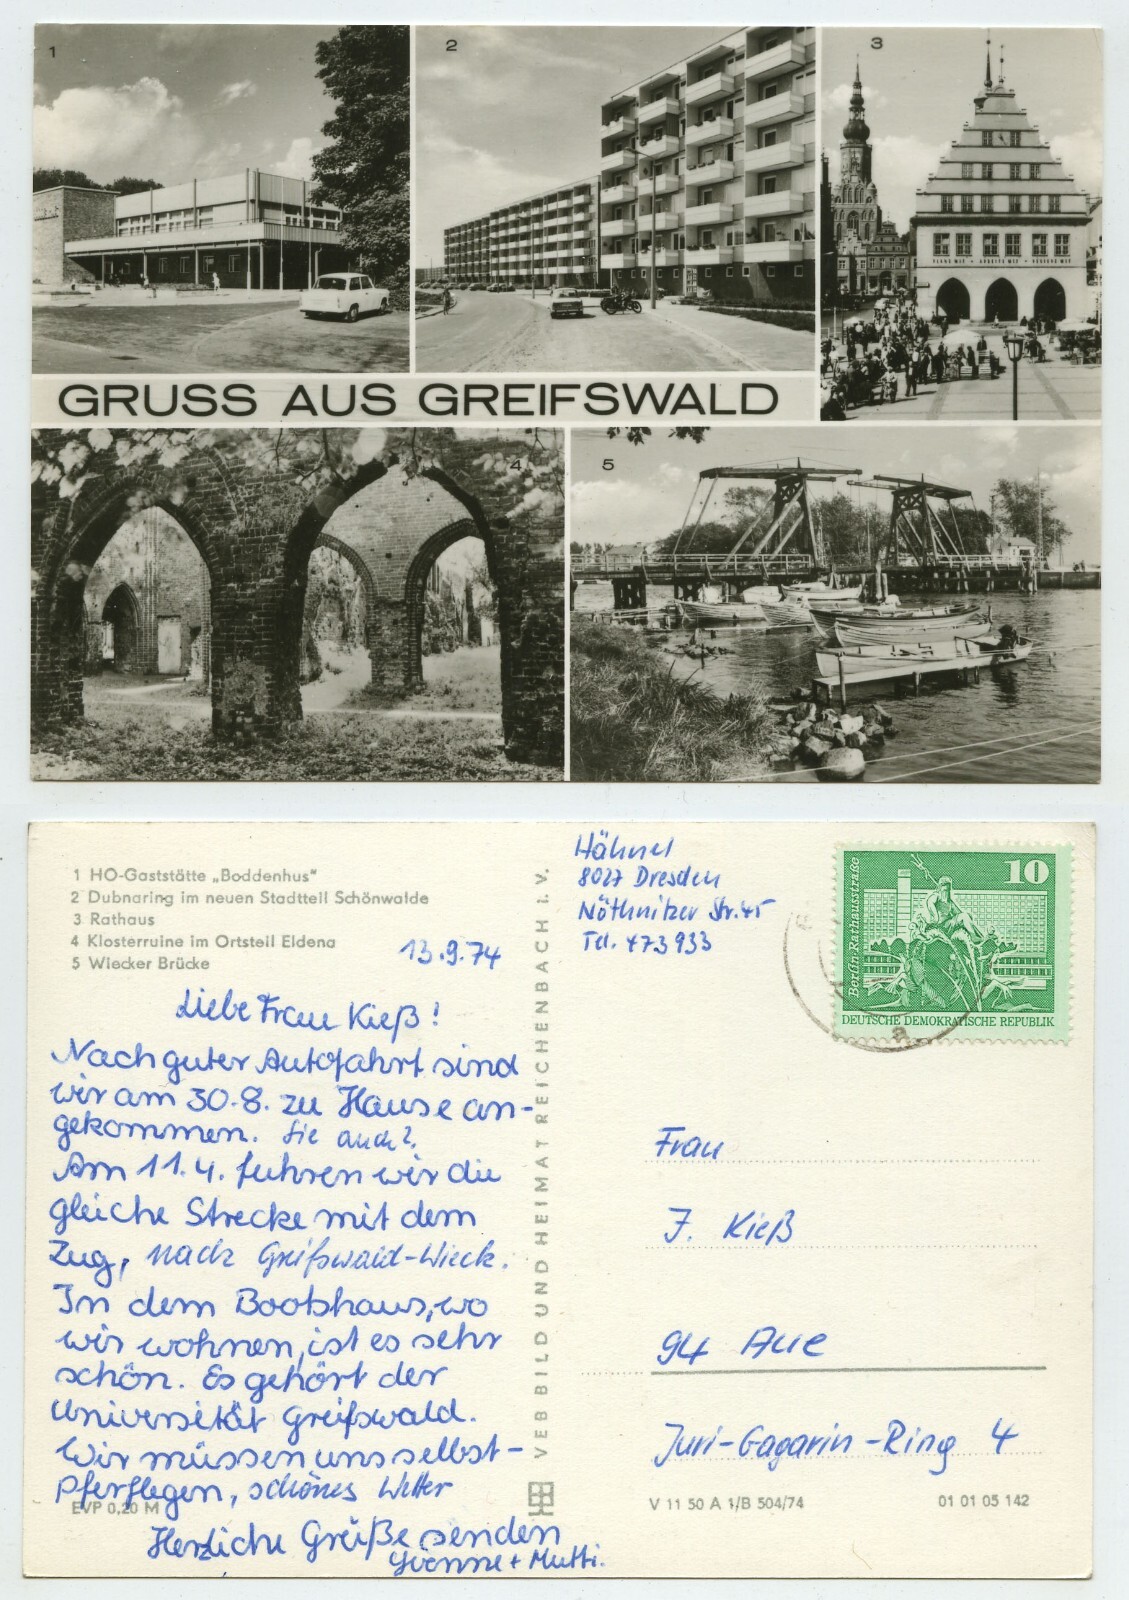 1
2
3
PLANE MIT • ARBEITE MIT • REGIERE MIT
GRUSS AUS GREIFSWALD
4
5
1 HO-Gaststätte „Boddenhus"
2 Dubnaring im neuen Stadtteil Schönwalde
3 Rathaus
4 Klosterruine im Ortsteil Eldena
5 Wiecker Brücke
13.9.74
Liebe Frau Kieß!
Nach guter Autofahrt sind
wir am 30.8. zu Hause an-
gekommen. Sie auch?
Am 11.4. fuhren wir die
gleiche Strecke mit dem
Zug, nach Greifswald-Wieck.
In dem Bootshaus, wo
wir wohnen, ist es sehr
schön. Es gehört der
Universität Greifswald.
Wir müssen uns selbst-
pferflegen, schönes Wetter
EVP 0,20 M
Herzliche Grüße senden
Yvonne + Mutti.
VEB BILD UND HEIMAT REICHENBACH I. V.
Hähnel
8027 Dresden
Nöthnitzer Str. 45
Tel. 473933
10
Berlin-Rathausstraße
DEUTSCHE DEMOKRATISCHE REPUBLIK
a
Frau
J. Kieß
94 Aue
Juri-Gagarin-Ring 4
V 11 50 A 1/B 504/74
01 01 05 142